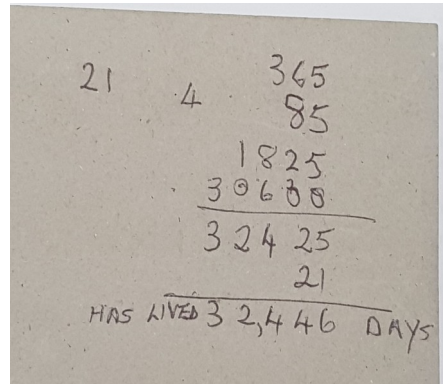 21 365
4 85
1825
30600
32425
21
HAS LIVED 32,446 DAYS